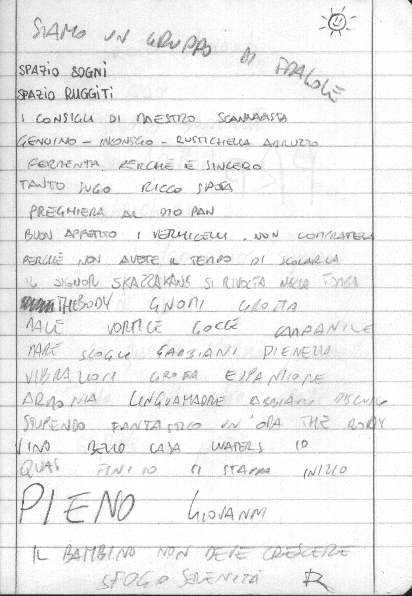 SIAMO UN GRUPPO DI FRAGOLE
SPAZIO SOGNI
SPAZIO RUGGITI
I CONSIGLI DI MAESTRO
GENUINO - - RUSTICHELLA ABRUZZO
FERMENTA PERCHÈ È SINCERO
TANTO SUGO RICCO
PREGHIERA AL DIO PAN
BUON APPETITO I VERMICELLI. NON
PERCHÈ NON AVETE IL TEMPO DI SCOLARLA
IL SIGNOR SKAZZAKANS SI RIVOLTA NELLA TOMBA
THE BODY GNOMI GROTTA
VORTICE GOCCE CAMPANILE
MARE SCOGLI GABBIANI
VIBRAZIONI GROTTA ESPANSIONE
ARMONIA LINGUAMADRE ABBIAMO
STUPENDO FANTASTICO UN'ORA THE BODY
VINO BELLO CASA WATERS IO
QUASI FINITO SI STAPPA INIZIO
PIENO GIOVANNI
IL BAMBINO NON DEVE CRESCERE
SFOGO SERENITÀ R